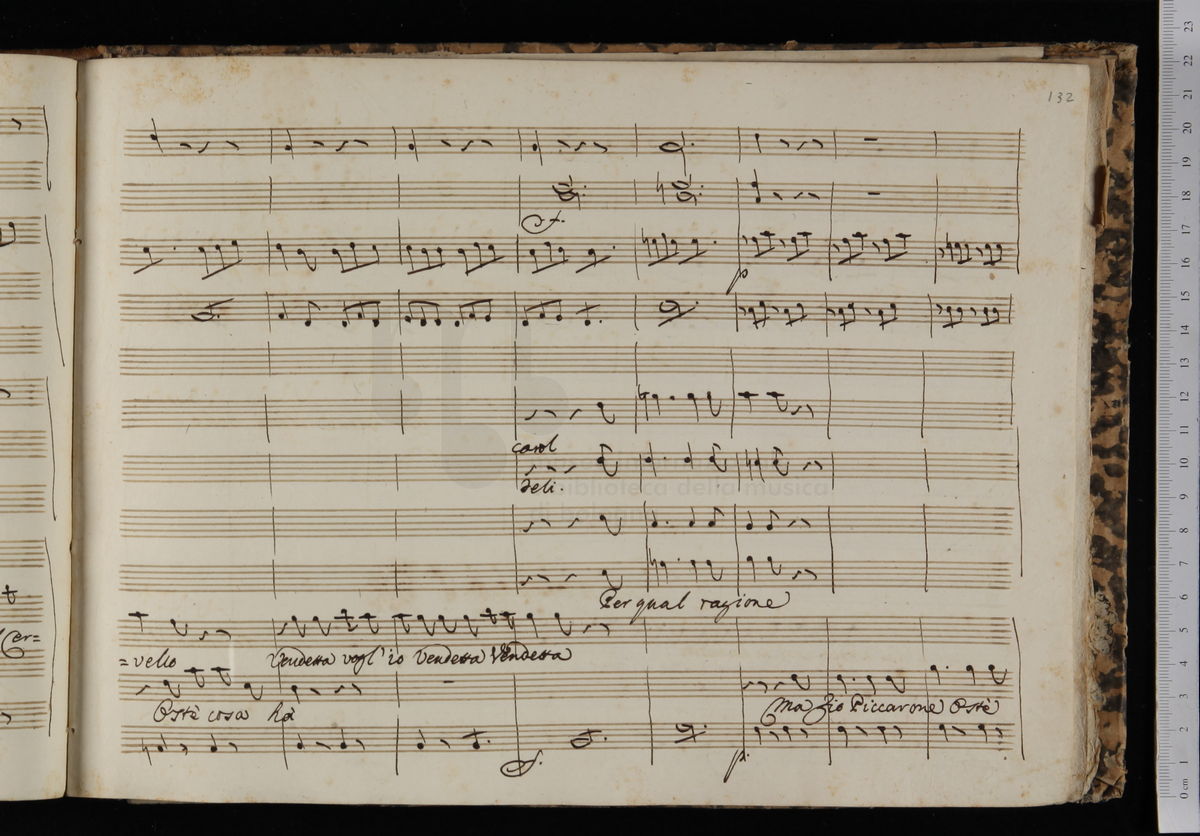 132
f.
p
carol
deli.
biblioteca della musica
Per qual ragione
Cer=
=vello Vendetta vogl'io Vendetta Vendetta
Ostè cosa hà
Ma zio Piccarone Ostè
f.
p.
23
22
21
20
19
18
17
16
15
14
13
12
11
10
9
8
7
6
5
4
3
2
1
0 cm